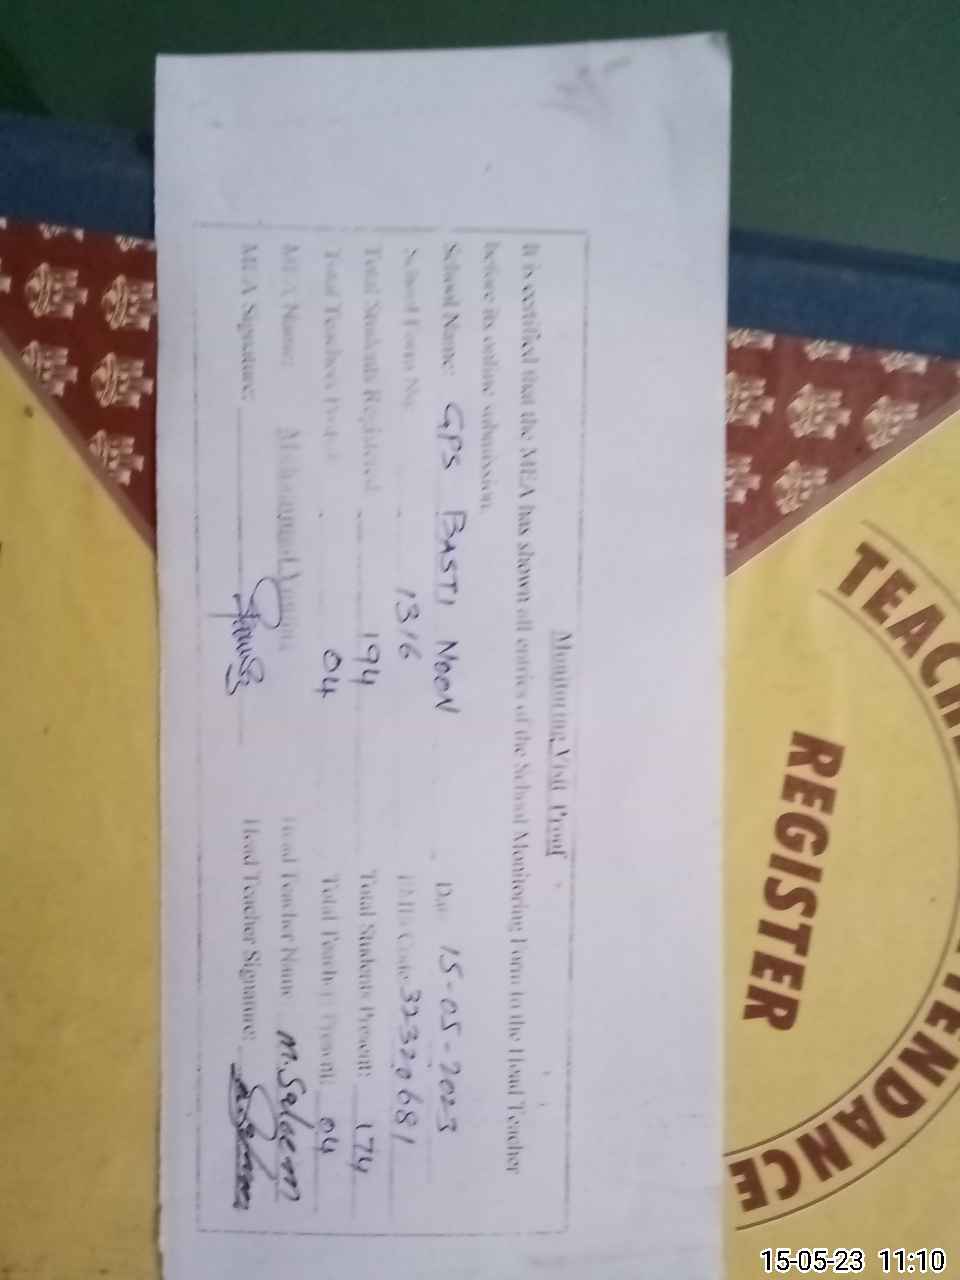 Monitoring Visit Proof
It is certified that the MEA has shown all entries of the School Monitoring Form to the Head Teacher
before its online submission.
School Name: GPS BASTI NOON Date 15-05-2023
School Form No: 1316 EMIS Code 32320681
Total Students Registered 194 Total Students Present: 174
Total Teachers 04 Total Teacher Present: 04
MEA Name: Muhammad Head Teacher Name M. Saleem
MEA Signature: Head Teacher Signature:
TEACHER ATTENDANCE
REGISTER
15-05-23 11:10